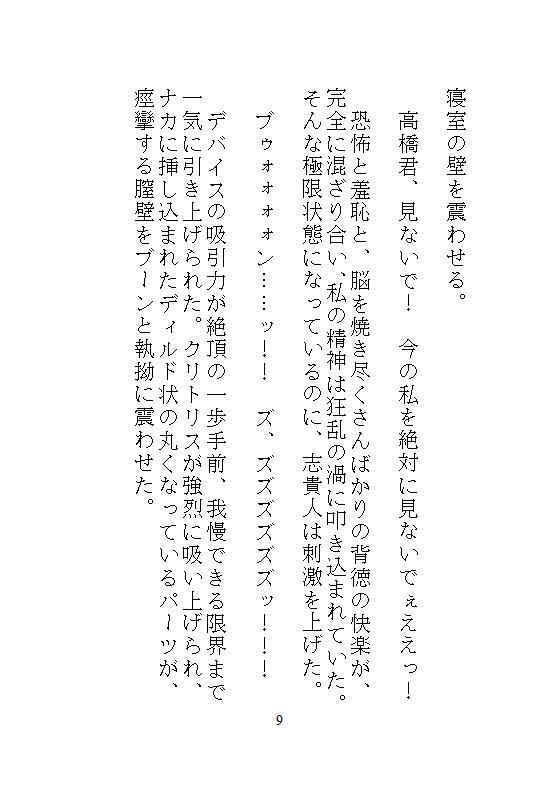 寝室の壁を震わせる。
高橋君、見ないで！　今の私を絶対に見ないでぇええっ！
恐怖と羞恥と、脳を焼き尽くさんばかりの背徳の快楽が、
完全に混ざり合い、私の精神は狂乱の渦に叩き込まれていた。
そんな極限状態になっているのに、志貴人は刺激を上げた。
ブゥォォォォン……ッ！！　ズ、ズズズズズズッ！！！
デバイスの吸引力が絶頂の一歩手前、我慢できる限界まで
一気に引き上げられた。クリトリスが強烈に吸い上げられ、
ナカに挿し込まれたディルド状の丸くなっているパーツが、
痙攣する膣壁をブーンと執拗に震わせた。
9